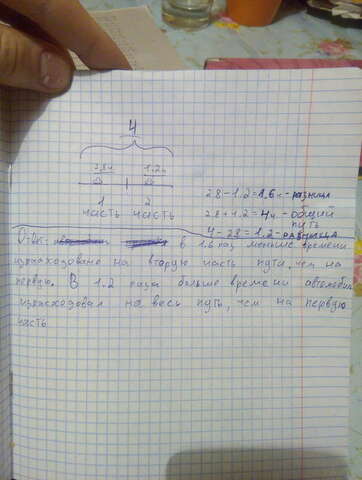 4
2,8ч 1.2ч
1 2
часть часть
2.8 - 1.2 = 1,6ч - разница
2.8 + 1.2 = 4ч - общий
путь
4 - 2.8 = 1.2 - разница
Ответ: в 1.6 раз меньше времени
израсходовано на вторую часть пути, чем на
первую. В 1.2 раза больше времени автомобиль
израсходовал на весь путь, чем на первую
часть